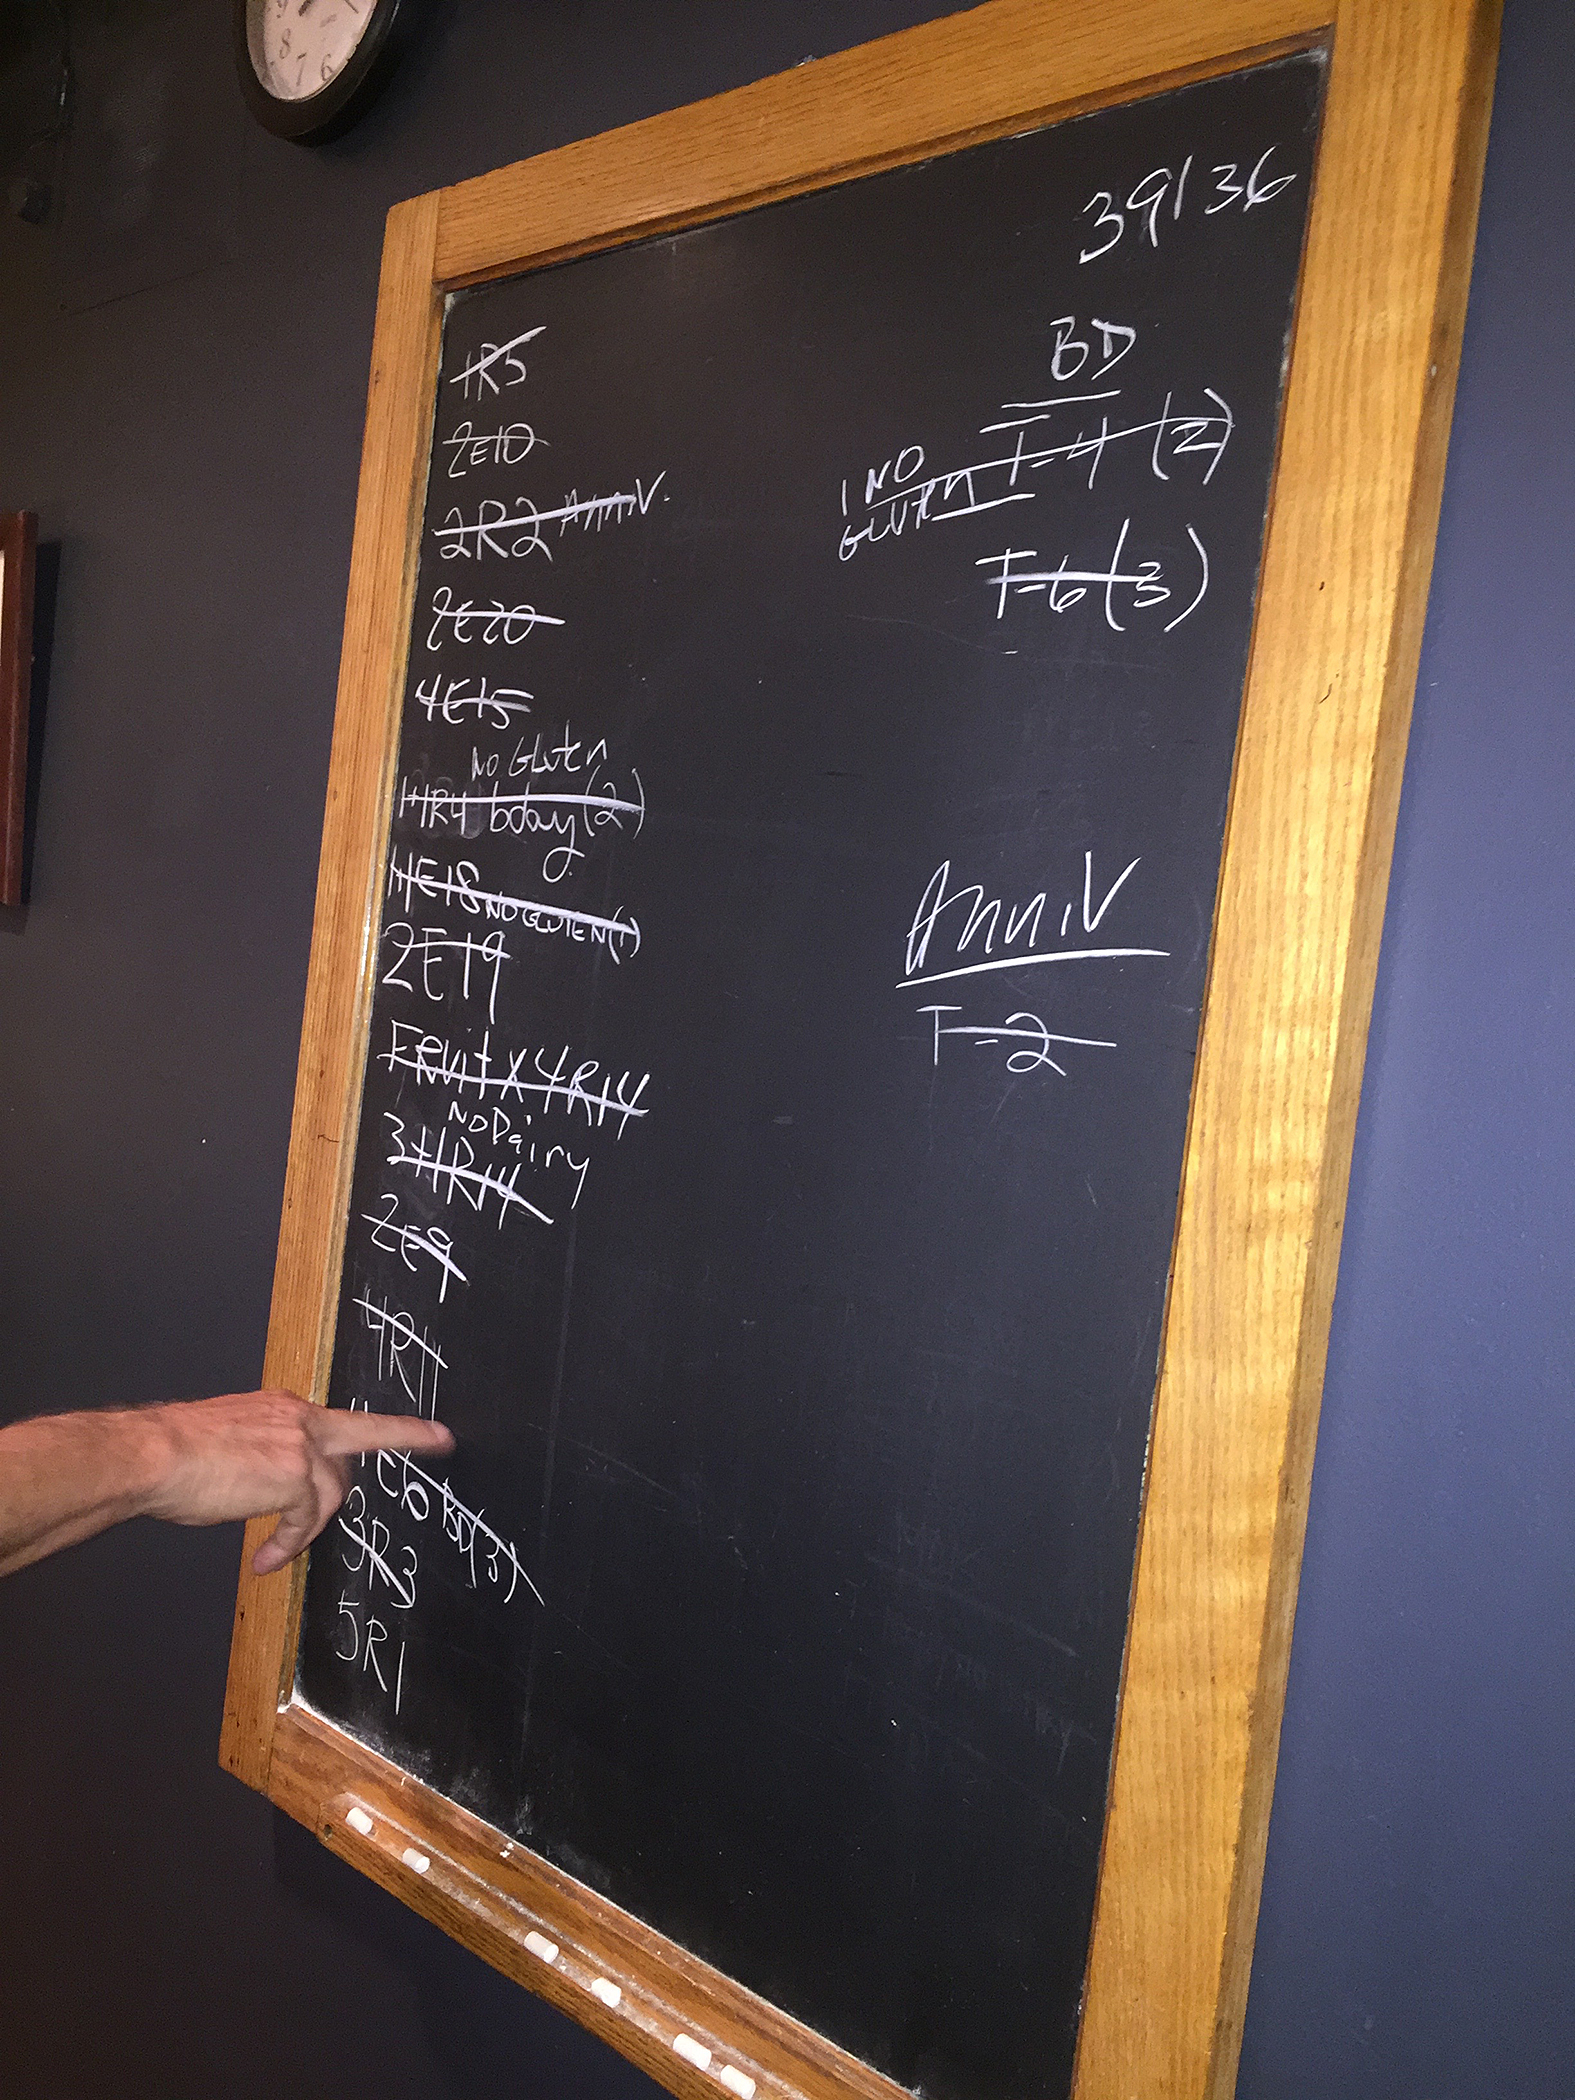 8 7 6
39/36
1R5
2E10
2R2 Anniv.
2E20
4E15
No Gluten
4R4 bday (2)
4E18 NO GLUTEN (1)
2E19
FRUIT X 4R14
No Dairy
3+1R14
2E9
4R11
E6 BD(3)
3R3
5R1
BD
1 NO GLUTEN T-4 (2)
T-6 (3)
Anniv
T-2